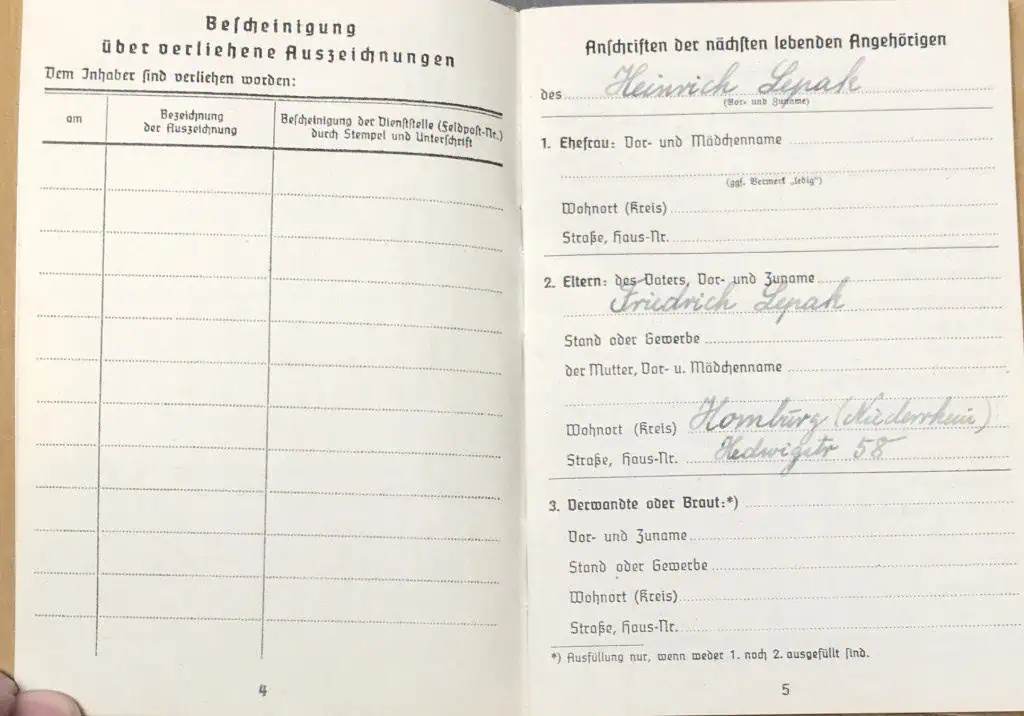 Bescheinigung
über verliehene Auszeichnungen
Dem Inhaber sind verliehen worden:
am
Bezeichnung
der Auszeichnung
Bescheinigung der Dienststelle (Feldpost-Nr.)
durch Stempel und Unterschrift
4
Anschriften der nächsten lebenden Angehörigen
des Heinrich Lepak
(Vor- und Zuname)
1. Ehefrau: Vor- und Mädchenname
(ggf. Vermerk „ledig“)
Wohnort (Kreis)
Straße, Haus-Nr.
2. Eltern: des Vaters, Vor- und Zuname
Friedrich Lepak
Stand oder Gewerbe
der Mutter, Vor- u. Mädchenname
Wohnort (Kreis) Homburg (Niederrhein)
Straße, Haus-Nr. Hedwigstr 58
3. Verwandte oder Braut:*)
Vor- und Zuname
Stand oder Gewerbe
Wohnort (Kreis)
Straße, Haus-Nr.
*) Ausfüllung nur, wenn weder 1. noch 2. ausgefüllt sind.
5